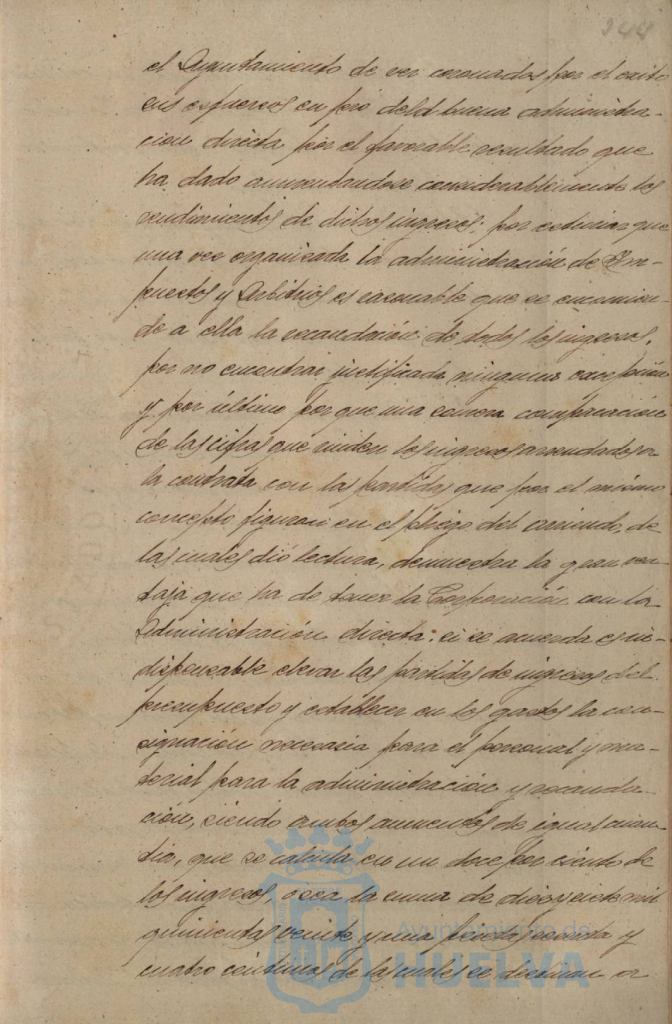 244
el Ayuntamiento de ver coronados por el exito
sus esfuerzos en pro de la buena administra-
cion directa por el favorable resultado que
ha dado aumentandose considerablemente los
rendimientos de dichos ingresos; por estimar que
una vez organizada la administración de Im-
puestos y Arbitrios es razonable que se encomien-
de a ella la recaudación de todos los ingresos,
por no encontrar justificada ninguna excepción
y por último por que una somera comparación
de las cifras que rinden los ingresos arrendados
la contrata con las partidas que por el mismo
concepto figuran en el pliego del arriendo, de
las cuales dió lectura, demuestra la gran ven-
taja que ha de tener la Corporación con la
Administración directa; si se acuerda es in-
dispensable elevar las partidas de ingresos del
presupuesto y establecer en los gastos la con-
signación necesaria para el personal y ma-
terial para la administración y recauda-
ción, siendo ambos aumentos de igual cuan-
tia, que se calcula en un doce por ciento de
los ingresos, o sea la suma de diez y siete mil
quinientas veinte y una pesetas sesenta y
cuatro centimos de las cuales se destinan a
Ayuntamiento de
HUELVA